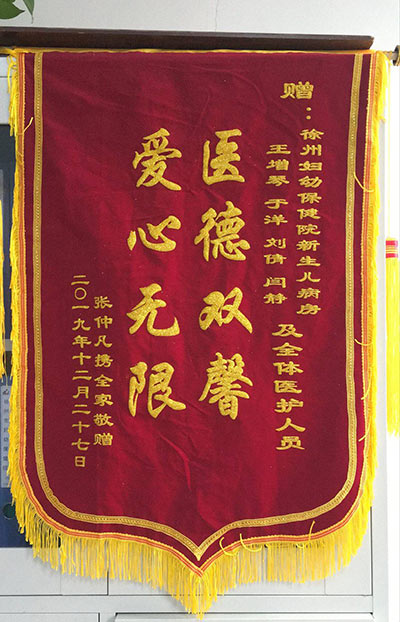 赠：
徐州妇幼保健院新生儿病房
王增琴 于洋 刘倩 闫静 及全体医护人员
医德双馨
爱心无限
张仲凡携全家敬赠
二〇一九年十二月二十七日